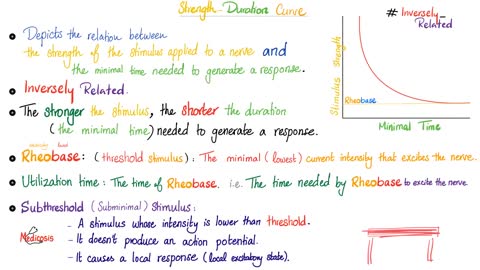 Strength-Duration Curve
# Inversely Related
Depicts the relation between
the strength of the stimulus applied to a nerve and
the minimal time needed to generate a response.
Inversely Related.
The stronger the stimulus, the shorter the duration
(the minimal time) needed to generate a response.
Rheobase: (threshold stimulus): The minimal (lowest) current intensity that excites the nerve.
Utilization time: The time of Rheobase. i.e. The time needed by Rheobase to excite the nerve.
Subthreshold (Subminimal) Stimulus:
- A stimulus whose intensity is lower than threshold.
- It doesn't produce an action potential.
- It causes a local response (local excitatory state).
Medicosis
Stimulus strength
Rheobase
Minimal Time